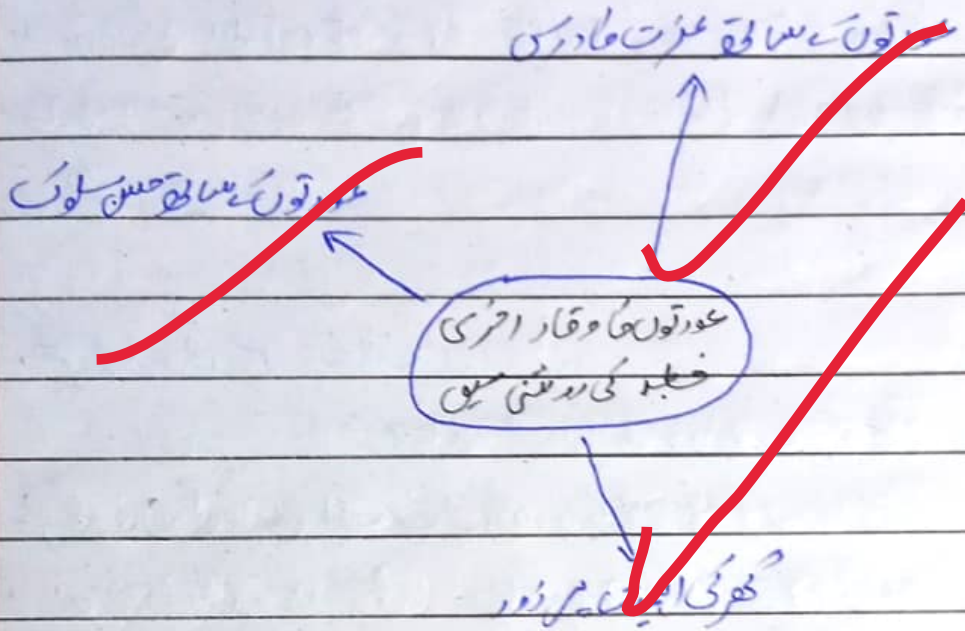 عورتوں کے ساتھ عزت کا درس
عورتوں کے ساتھ حسن سلوک
عورتوں کا وقار آخری
خطبہ کی روشنی میں
گھر کی اہمیت پر زور